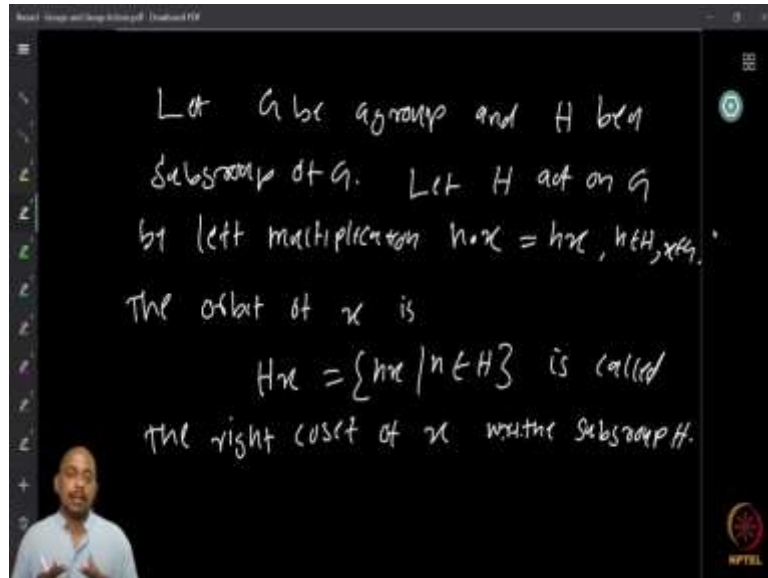 Let G be a group and H be a
subgroup of G. Let H act on G
by left multiplication h·x = hx, h∈H, x∈G.
The orbit of x is
Hx = {hx | h ∈ H} is called
the right coset of x w.r.t the subgroup H.
NPTEL